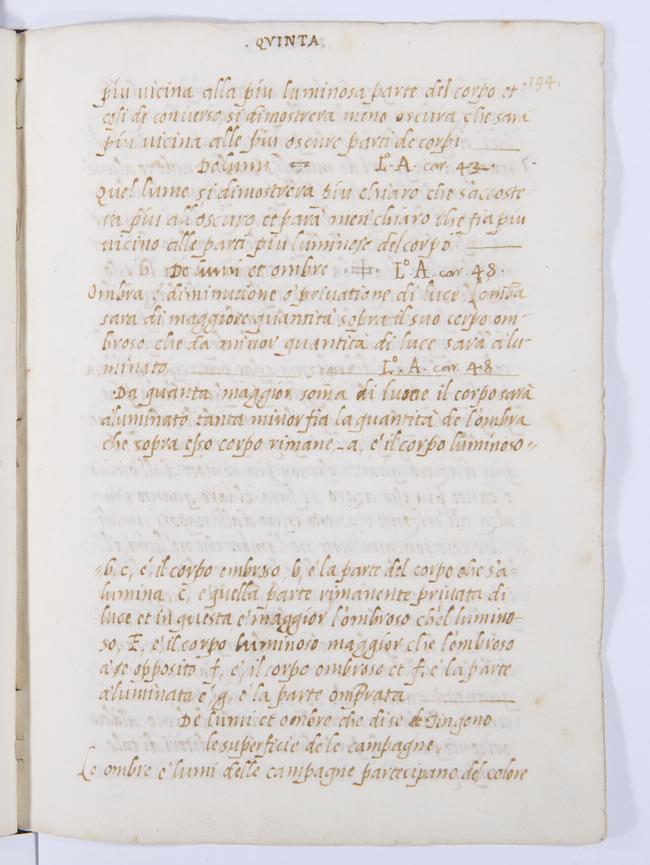 . QVINTA.
194.
piu vicina alla piu luminosa parte del corpo et
cosi de converso si dimostrera meno oscura che sara
piu vicina alle piu oscure parti de corpi
De lumi Lº. A. car. 43.
Quel lume si dimostrera piu chiaro che s'accoste
ra piu all'oscuro et parà men chiaro che fia piu
vicino alle parti piu luminose del corpo
De lumi et ombre Lº. A. car. 48.
Ombra è diminutione o privatione di luce l'omb̃a
sara di maggiore quantità sopra il suo corpo om-
broso che da minor quantita di luce sarà alu-
minato Lº. A. car. 48.
Da quanta maggior som̃a di luce il corpo sarà
aluminato tanta minor fia la quantità de l'ombra
che sopra esso corpo rimane, a, e' il corpo luminoso
b, c, e' il corpo ombroso, b, e' la parte del corpo che s'a-
lumina, c, e' quella parte rimanente privata di
luce et in questa e' maggior l'ombroso che'l lumino-
so, E, e' il corpo luminoso maggior che l'ombroso
a se opposito f, e' il corpo ombroso et f, e' la parte
aluminata e', g, e la parte ombrata
De lumi et ombre che di se tingono
le superficie de le campagne.
Le ombre e' lumi delle campagne partecipano del colore